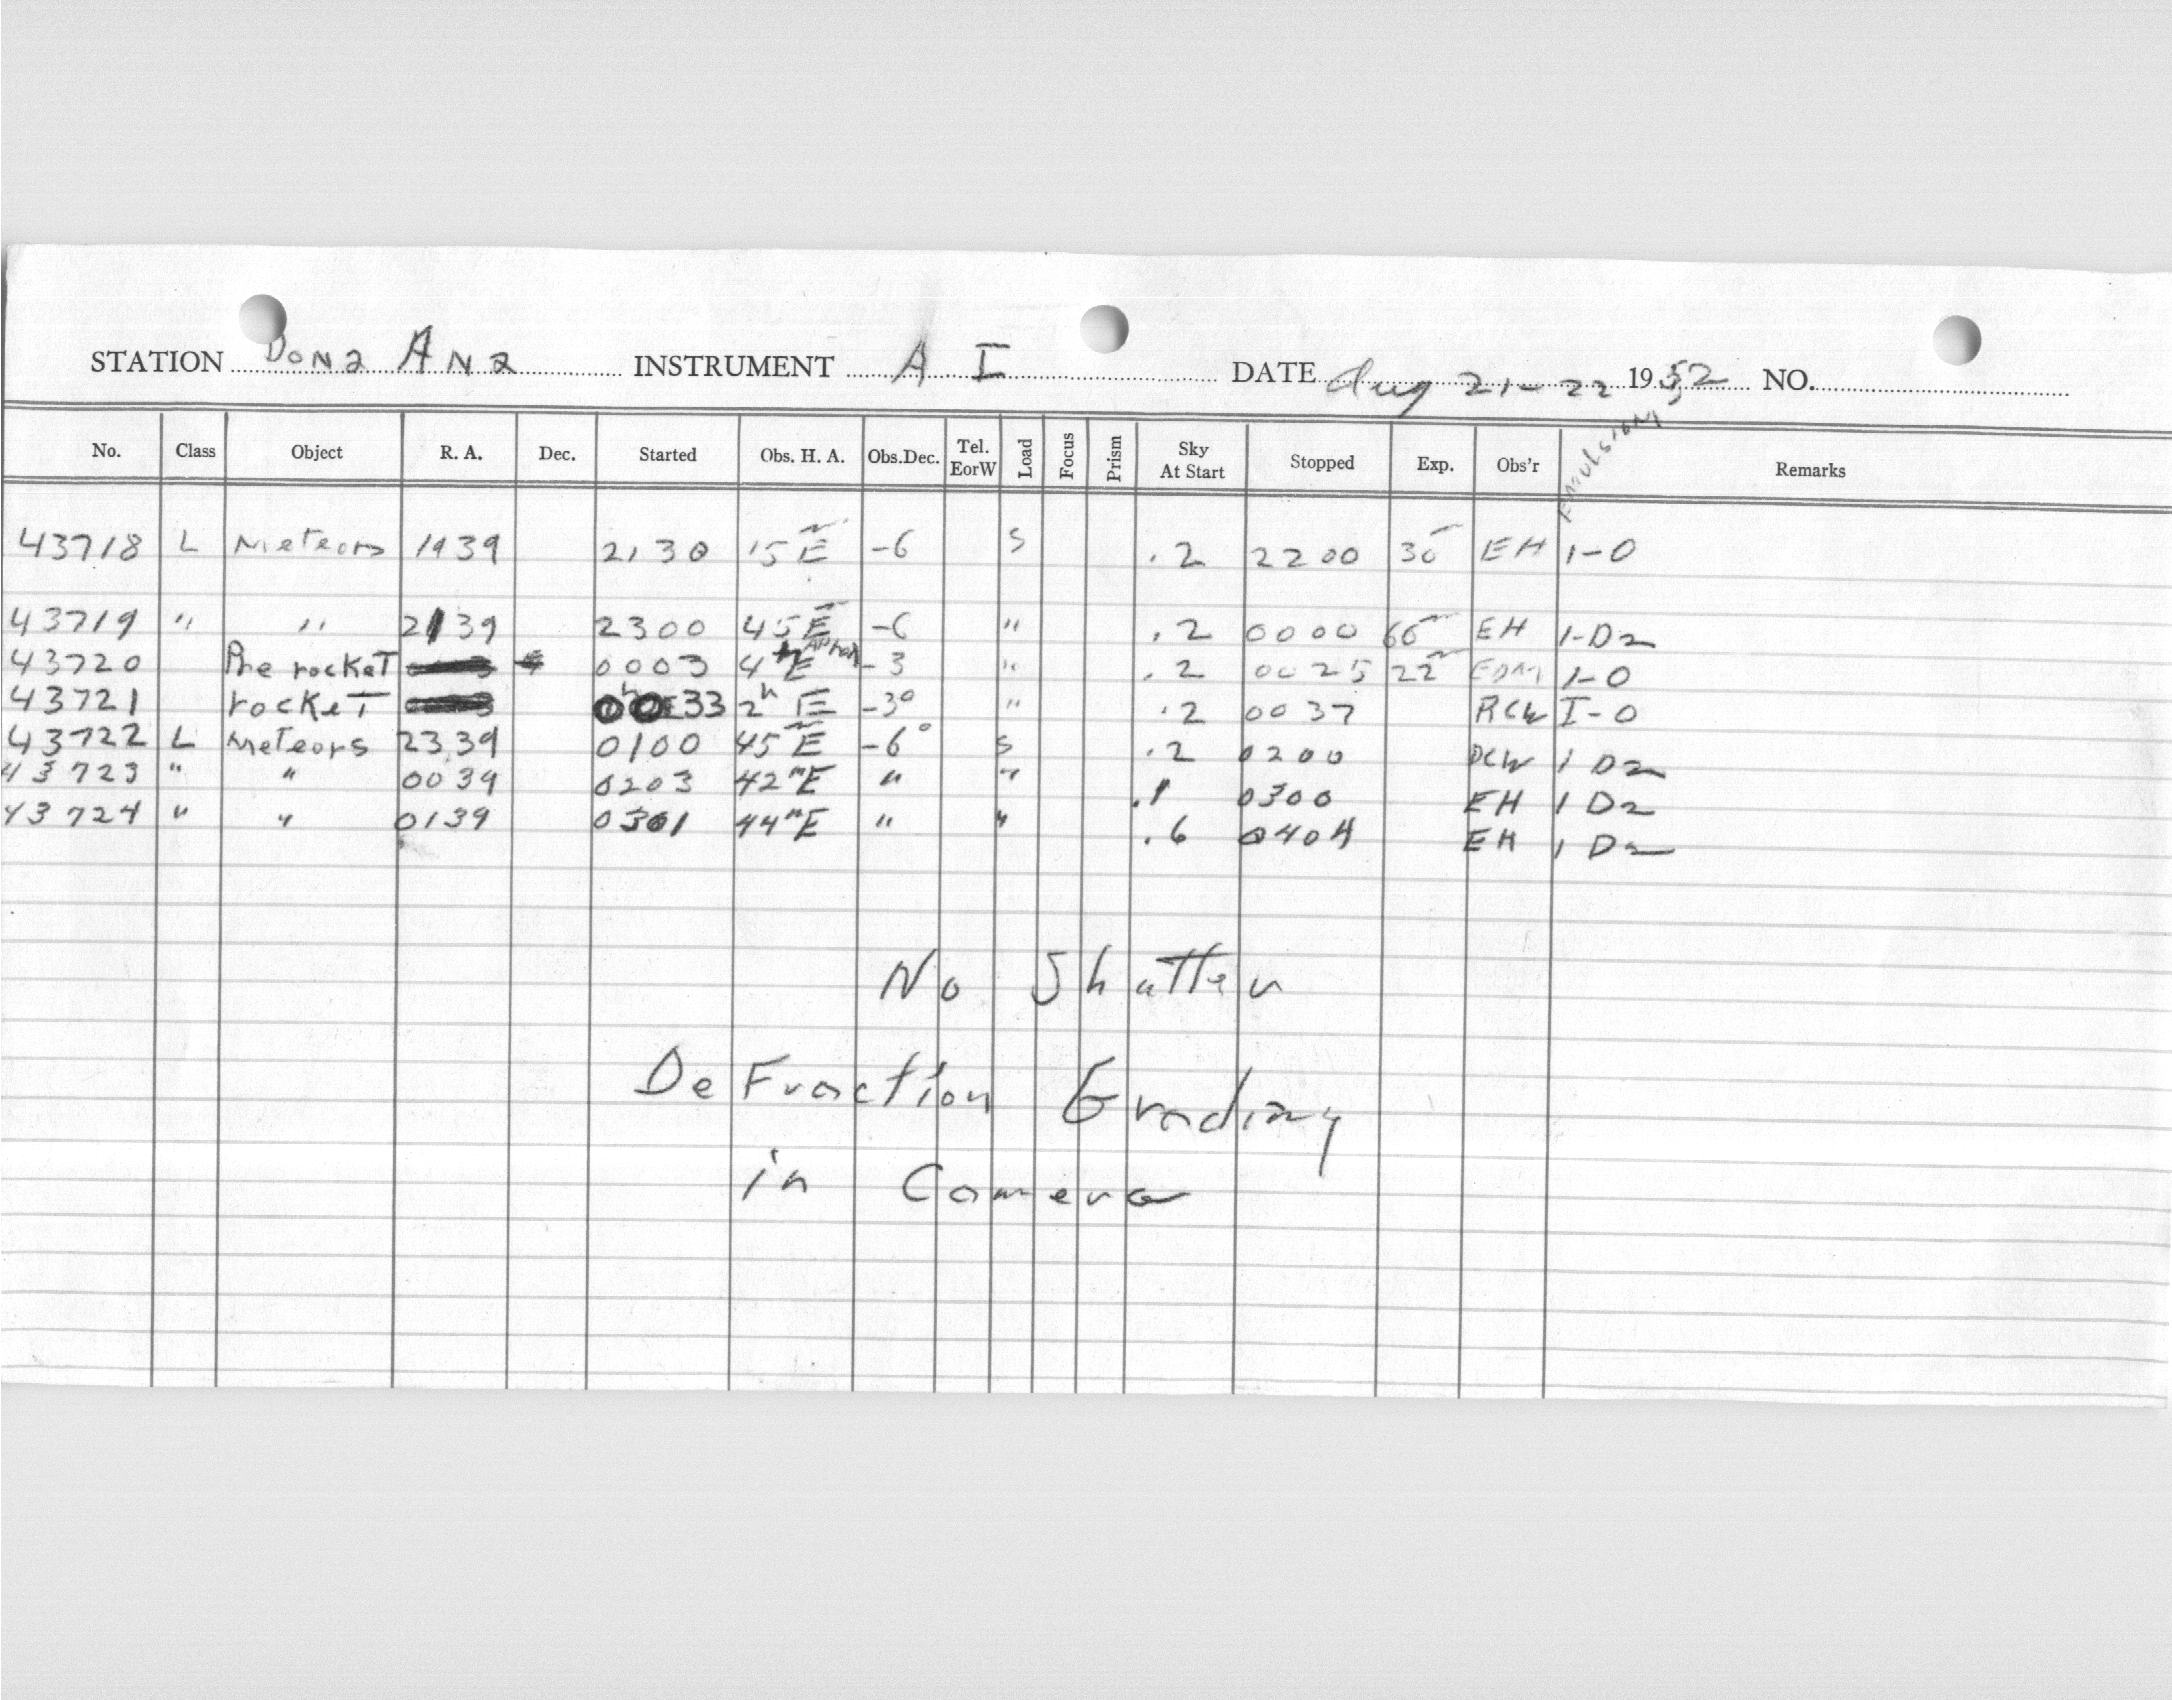 STATION Dona Ana INSTRUMENT A I DATE Aug 21-22 1952 NO.
No. Class Object R. A. Dec. Started Obs. H. A. Obs.Dec. Tel. EorW Load Focus Prism Sky At Start Stopped Exp. Obs'r EMULSION Remarks
43718 L Meteors 1939 2130 15 m E -6 S .2 2200 30 EH 1-O
43719 " " 2139 2300 45 m E -6 " .2 0000 60 EH 1-D2
43720 Pre rocket 0003 4 h E -3 " .2 0025 22 m EDM 1-O
43721 rocket 33 2 h E -3° " .2 0037 RCW I-O
43722 L Meteors 2339 0100 45 m E -6° S .2 0200 RCW 1 D2
43723 " " 0039 0203 42 m E " " .1 0300 EH 1 D2
43724 " " 0139 0301 44 m E " " .6 0404 EH 1 D2
No Shutter
DeFraction Grading
in Camera